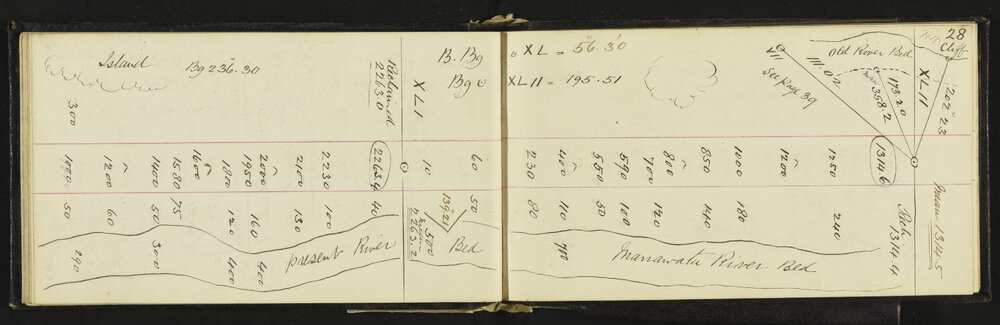 28
Island
Bg 236.30
B. Bg
⊙ XL = 56.30
Bg ⊙ XLII = 195.51
Old River Bed
Cliff
Reclained
2263.0
XLI
XLII
111.02
see page 39
173.20
358.2
202.23
300
1000
50
290
1200
60
1400
50
300
1580
75
1600
1800
120
400
1950
160
400
2000
2100
130
2230
100
2263.4
40
10
139.21
1500
2263.2
60
50
230
80
40
110
710
550
50
590
100
700
120
800
850
140
1000
180
1200
1250
240
1314.6
Rech
1314.4
Mean 1314.5
present River
Bed
Manawatu River Bed